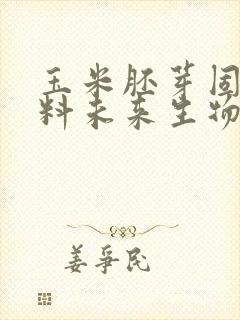 玉米胚芽固
料未来生物
姜爭民